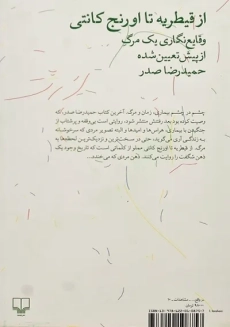 از قیطریه تا اورنج کانتی
وقایع‌نگاری یک مرگ
از پیش تعیین شده
حمیدرضا صدر
چشم در چشم بیماری، زمان و مرگ. آخرین کتاب حمیدرضا صدر که
وصیت کرده بود بعد رفتنش منتشر شود. روایتی است بی‌وقفه و پرشتاب از
جنگیدن با بیماری، هراس‌ها و امیدها و البته تصویر مردی که سرخوشانه
به زندگی آری می‌گوید، حتی در سخت‌ترین و نزدیک‌ترین لحظه‌ها به
مرگ. از قیطریه تا اورنج کانتی مملو از کلماتی است که تاریخ وجود یک
ذهن شگفت را روایت می‌کنند. ذهن مردی که می‌خندد...